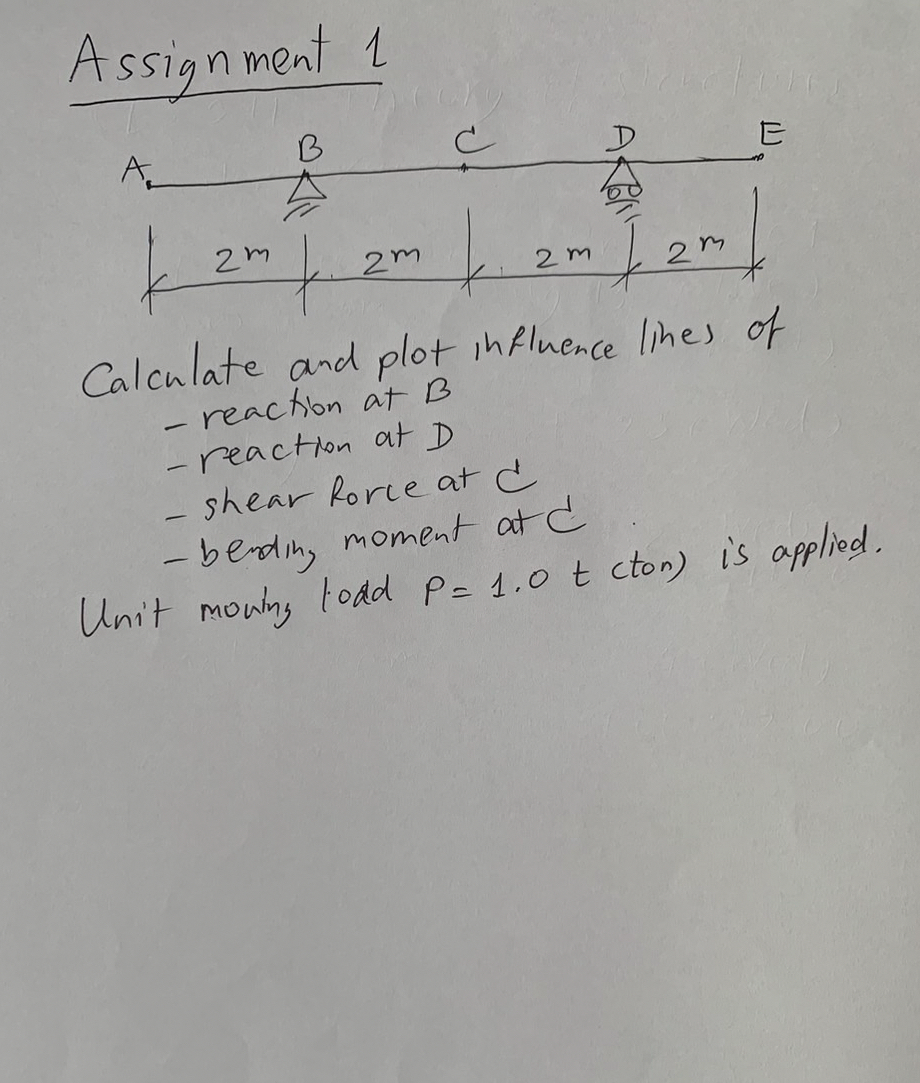 Assignment 1
A B C D E
2m 2m 2m 2m
Calculate and plot influence lines of
- reaction at B
- reaction at D
- shear force at C
- bending moment at C
Unit moving load P = 1.0 t (ton) is applied.